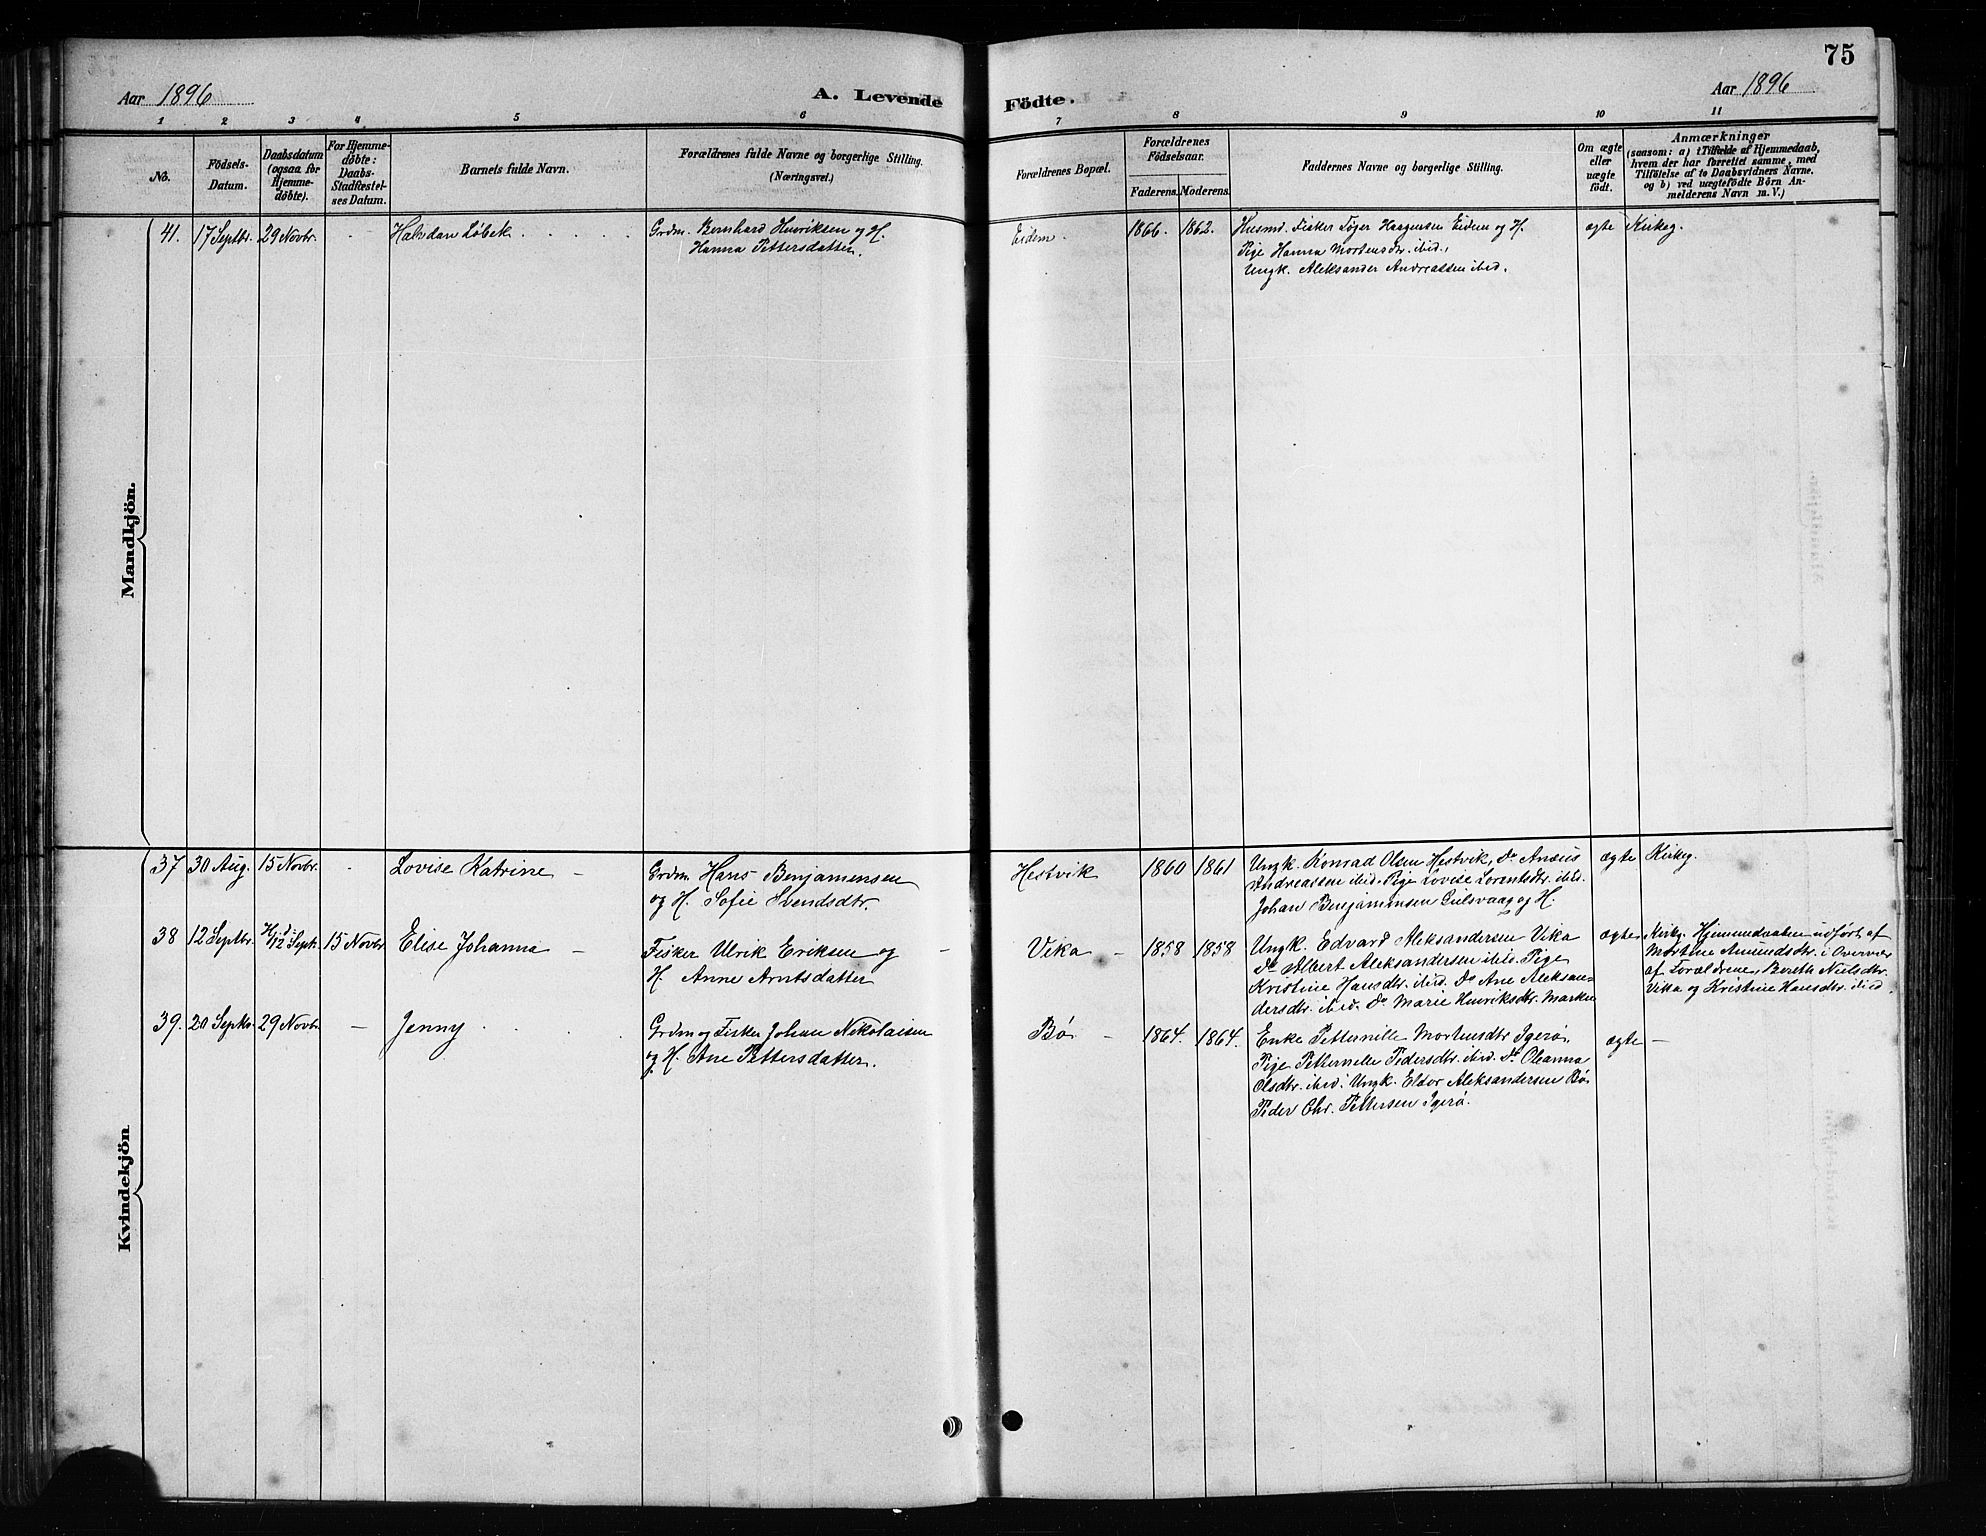 75
Aar 1896
A. Levende
Födte.
Aar 1896
1 2 3 4 5 6 7 8 9 10 11
No.
Födsels-
Datum.
Daabsdatum
(ogsaa for
Hjemme-
döbte).
For Hjemme-
döbte:
Daabs-
Stadfæstel-
ses Datum.
Barnets fulde Navn.
Forældrenes fulde Navne og borgerlige Stilling.
(Næringsvei.)
Forældrenes Bopæl.
Forældrenes
Födselsaar.
Faderens. Moderens.
Faddernes Navne og borgerlige Stilling.
Om ægte
eller
uægte
födt.
Anmærkninger
(saasom: a) i Tilfælde af Hjemmedaab,
hvem der har forrettet samme, med
Tilföielse af to Daabsvidners Navne.
og b) ved uægtefödte Börn An-
melderens Navn m. V.)
Mandkjön.
41. 17 Septbr. 29 Novbr. - Halvdan Løbek
Grdm. Bernhard Henriksen og H.
Hanna Pettersdatter.
Eidem. 1866. 1862.
Husmd. Fisker Tøger Haagensen Eidem og H.
Pige Hanna Mortensdtr. ibid.,
Ungk. Aleksander Andreassen ibid.
ægte Kirkeg.
Kvindekjön
37 30 Aug. 15 Novbr. - Lovise Katrine -
Grdm. Hans Benjamensen
og H. Sofie Svendsdtr.
Hestvik 1860 1861
Ungk. Konrad Olsen Hestvik, Do Anæus
Andreassen ibid. Pige Lovise Lorentsdtr. ibid.
Johan Benjaminsen og H.
ægte Kirkeg.
38 12 Septbr. H.d. 12 Sept. 15 Novbr Elise Johanna -
Fisker Ulrik Eriksen og -
H. Anne Arntsdatter
Vika - 1858 1858
Ungk. Edvard Aleksandersen Vika
Do Albert Aleksandersen ibid. Pige
Kristine Hansdtr. ibid. Do Ane Aleksan-
dersdtr. ibid. Do Marie Henriksdtr. Marken
ægte Kirkg. Hjemmedaaben udført af
Mortine Amundsdtr. i Overvær
af Forældrene, Bereth Nielsdtr.
Vika og Kristine Hansdtr. ibid.
39. 20 Septbr. 29 Novbr - Jenny
Grdm og Fisker Johan Nikolaisen
og H. Ane Pettersdatter.
Bø - 1864. 1864.
Enke Petternille Mortensdtr Igerø,
Pige Petternelle Pedersdtr. ibid. Do Oleanna
Olsdtr. ibid. Ungk. Eldor Aleksandersen Bø,
Peder Chr. Pettersen Igerø.
ægte -